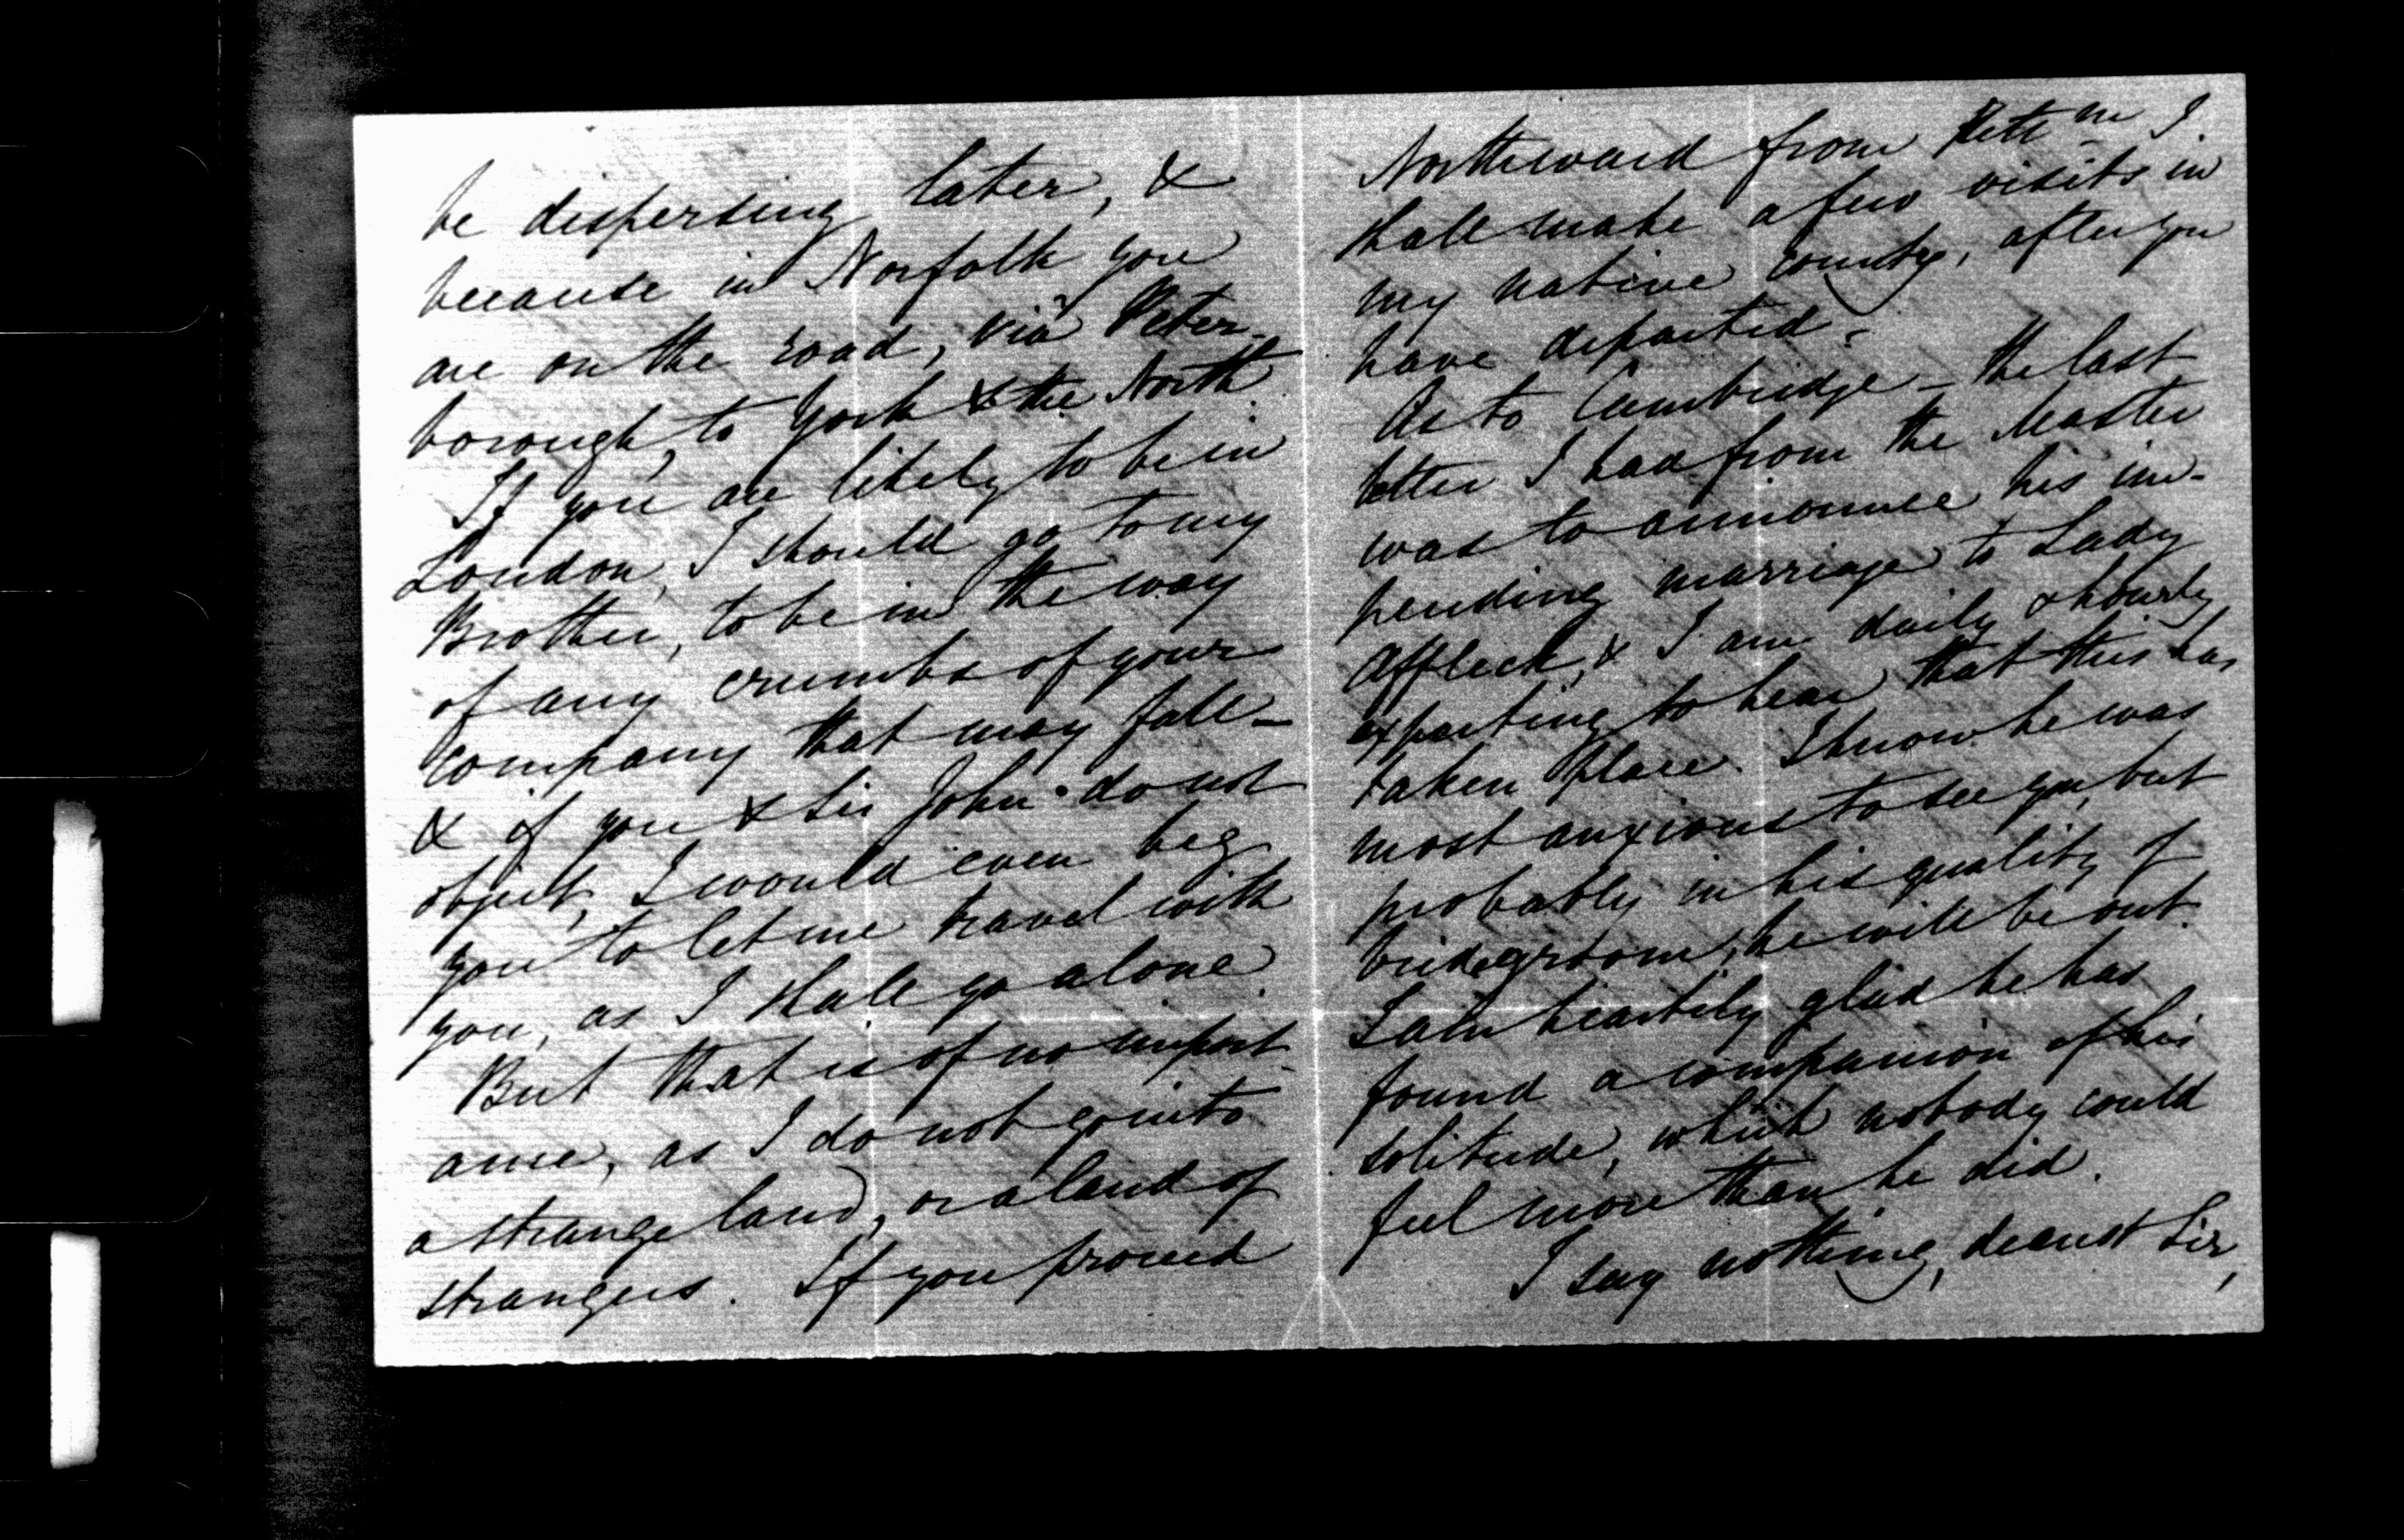 be dispersing later, &
because in Norfolk you
are on the road, viâ Peter-
borough, to York & the North.
If you are likely to be in
London, I should go to my
Brother, to be in the way
of any crumbs of your
company that may fall –
& if you & Sir John do not
object, I would even beg
you to let me travel with
you, as I shall go alone.
But that is of no import-
ance, as I do not go into
a strange land, or a land of
strangers. If you proceed
Northward from I
shall make a few visits in
my native county, after you
have departed.
As to Cambridge – the last
letter I had from the Master
was to announce his im-
pending marriage to Lady
Affleck, & I am daily & hourly
expecting to hear that this has
taken place. I know he was
most anxious to see you, but
probably in his quality of
bridegroom, he will be out.
I am heartily glad he has
found a companion of his
solitude, which nobody could
feel more than he did.
I say nothing, dearest Sir,